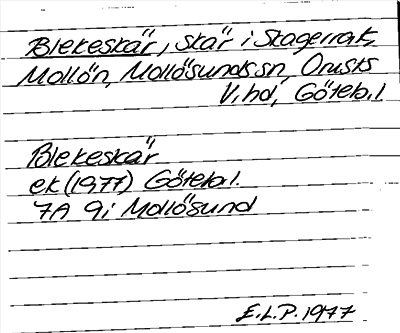 Blekeskär, skär i Skagerrak,
Mollön, Mollösunds sn, Orusts
V.hd, Götebl.l
Blekeskär
ek (1977) Götebl.
7A 9i Mollösund
E.L.P. 1977